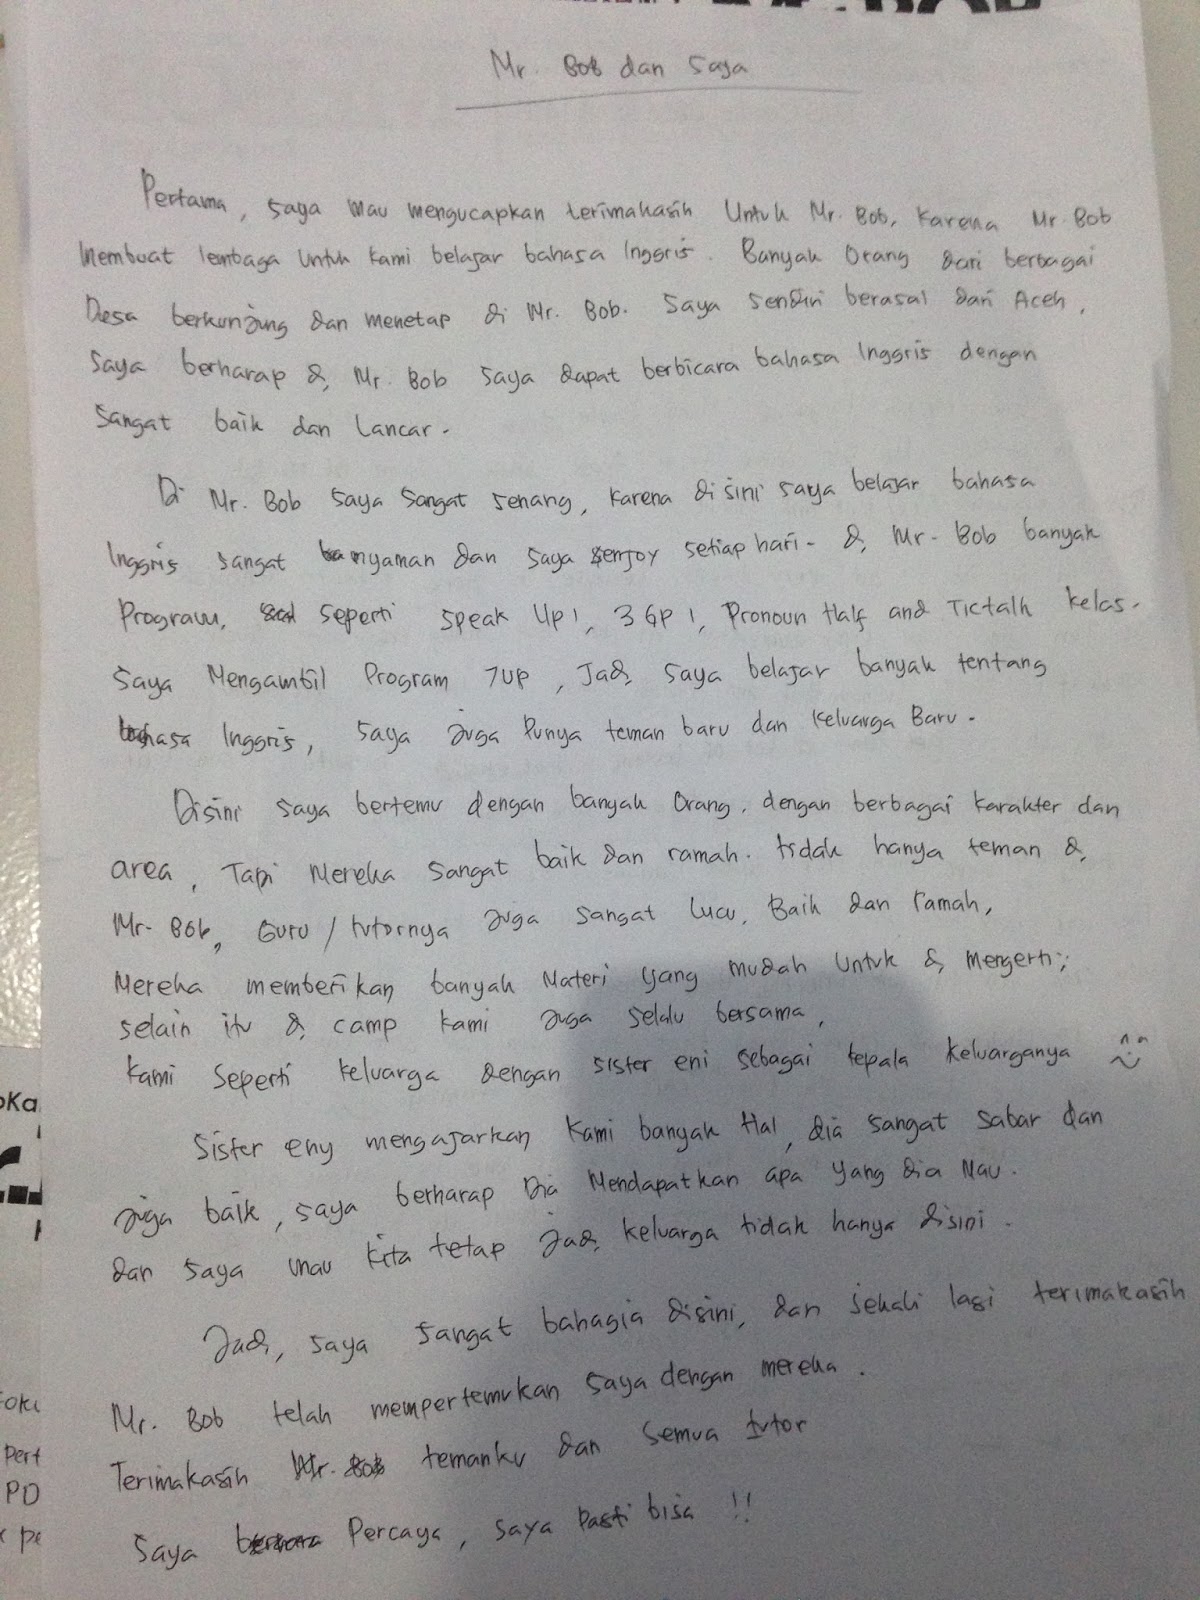 Mr. Bob dan Saya
Pertama, saya mau mengucapkan terimakasih Untuk Mr. Bob, Karena Mr. Bob
Membuat lembaga untuk kami belajar bahasa Inggris. Banyak Orang dari berbagai
Desa berkunjung dan menetap di Mr. Bob. Saya sendiri berasal dari Aceh,
Saya berharap di Mr. Bob saya dapat berbicara bahasa Inggris dengan
sangat baik dan Lancar.
Di Mr. Bob saya sangat senang, karena disini saya belajar bahasa
Inggris sangat nyaman dan saya enjoy setiap hari. di Mr. Bob banyak
Program, seperti Speak Up 1, 3 GP 1, Pronoun Half and Tictalk kelas.
Saya Mengambil Program 7up, Jadi saya belajar banyak tentang
bahasa Inggris, saya juga Punya teman baru dan Keluarga Baru.
Disini saya bertemu dengan banyak Orang, dengan berbagai karakter dan
area, Tapi Mereka sangat baik dan ramah. tidak hanya teman di
Mr. Bob, Guru / tutornya juga sangat Lucu, Baik dan ramah,
Mereka memberikan banyak Materi yang mudah Untuk di mengerti;
selain itu di camp kami juga selalu bersama,
Kami Seperti keluarga dengan sister eni sebagai kepala keluarganya
Sister eny mengajarkan Kami banyak Hal, dia sangat sabar dan
juga baik, saya berharap Dia Mendapatkan apa yang dia Mau.
dan saya mau kita tetap Jadi keluarga tidak hanya disini.
Jadi, saya sangat bahagia disini, dan sekali lagi terimakasih
Mr. Bob telah mempertemukan saya dengan mereka.
Terimakasih Mr. Bob temanku dan semua tutor
Saya Percaya, saya Pasti bisa !!
oKa
PD